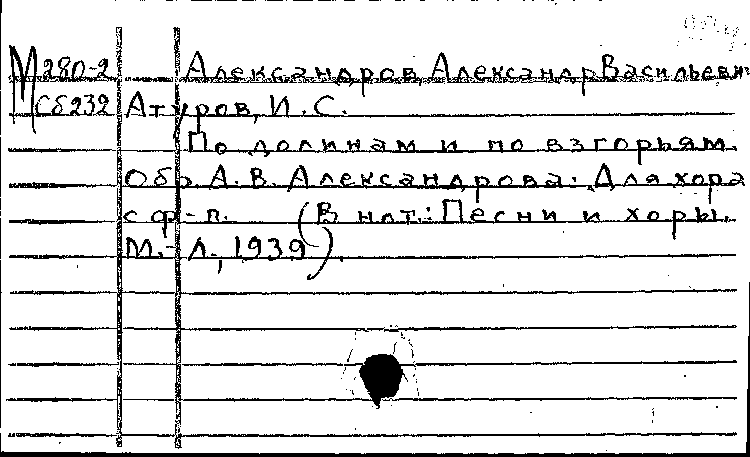 М 280-2 Александров, Александр Васильеви
Сб232 Атуров, И. С.
По долинам и по взгорьям.
Обр. А. В. Александрова: Для хора
с ф-п. (В нот.: Песни и хоры.
М.- Л., 1939).